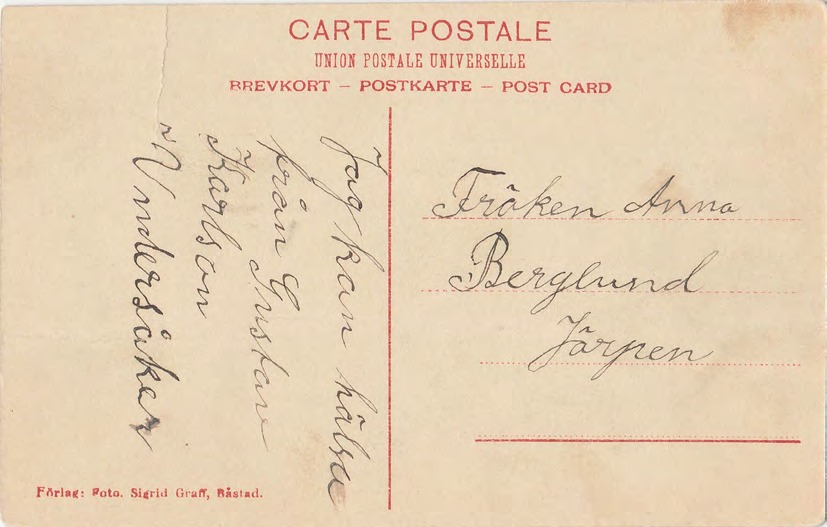 CARTE POSTALE
UNION POSTALE UNIVERSELLE
BREVKORT – POSTKARTE – POST CARD
Jag kan hälsa
från Gustav
Karlson
Undersåker
Fröken Anna
Berglund
Järpen
Förlag: Foto. Sigrid Graff, Båstad.